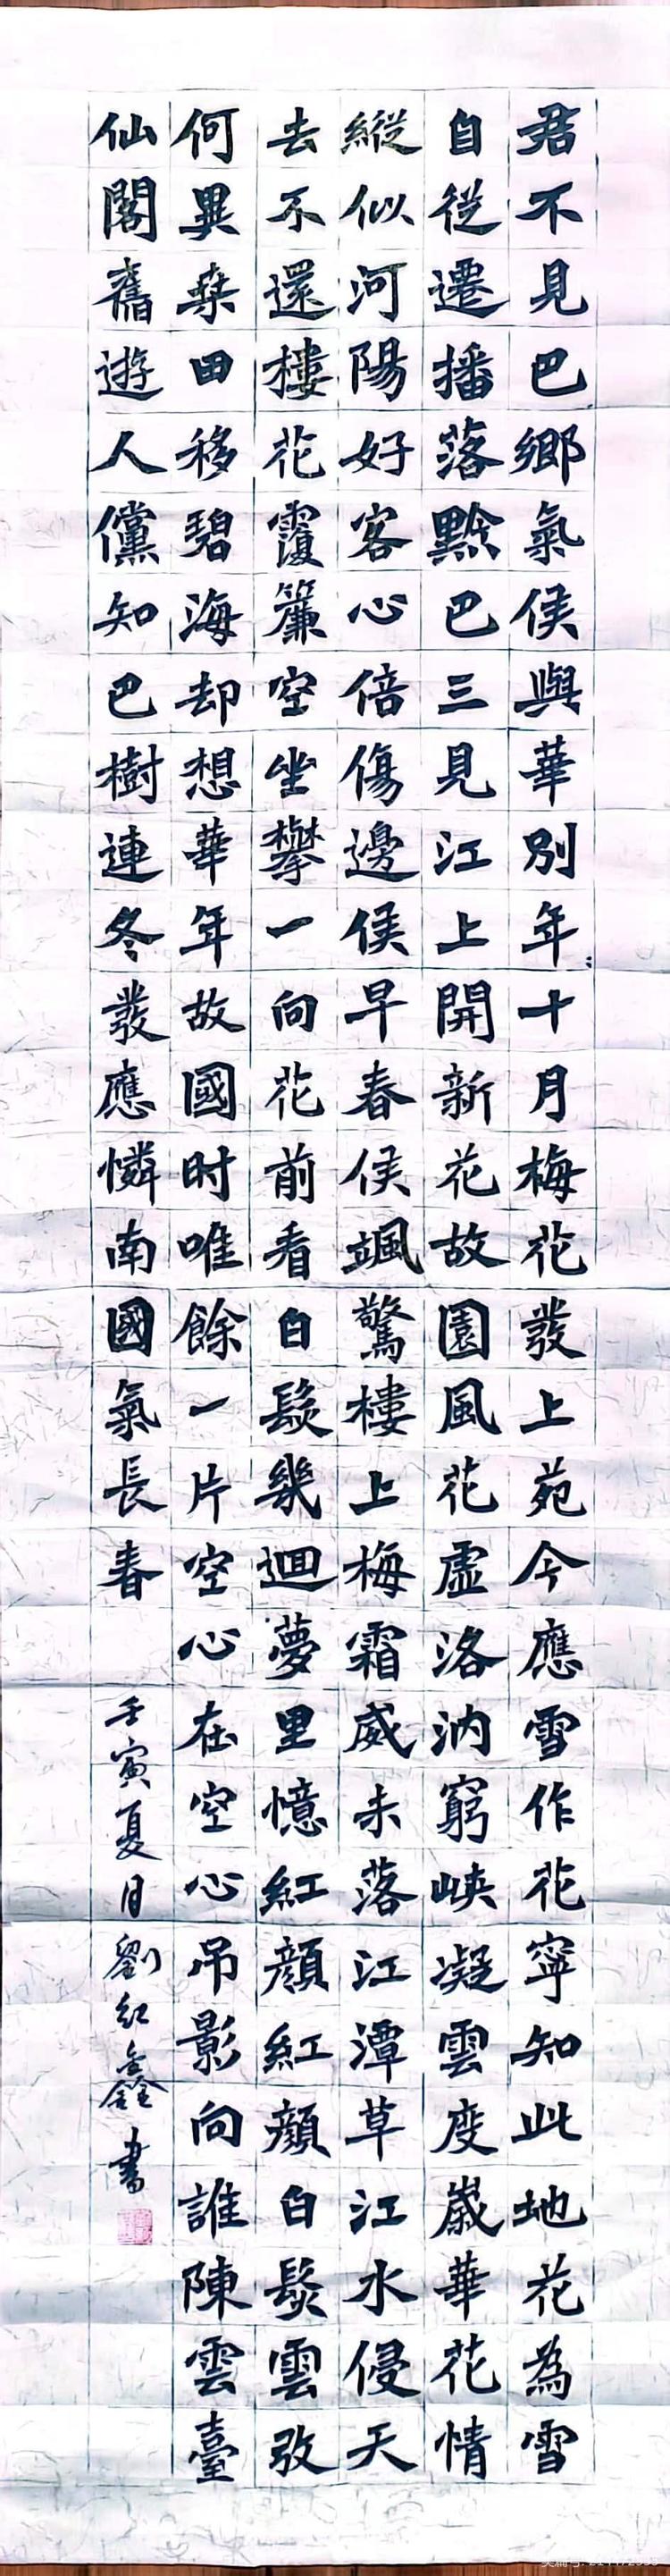 君不見巴鄉氣侯與華別年十月梅花發上苑今應雪作花寧知此地花為雪
自從遷播落黔巴三見江上開新花故園風花虛洛汭窮峽凝雲度歲華花情
縱似河陽好客心倍傷邊侯早春侯颯驚樓上梅霜威未落江潭草江水侵天
去不還樓花覆簾空坐攀一向花前看白髮幾迴夢里憶紅顏紅顏白髮雲改
何異桑田移碧海却想華年故國时唯餘一片空心在空心吊影向誰陳雲臺
仙閣舊遊人儻知巴樹連冬發應憐南國氣長春
壬寅夏日劉紅鑫書